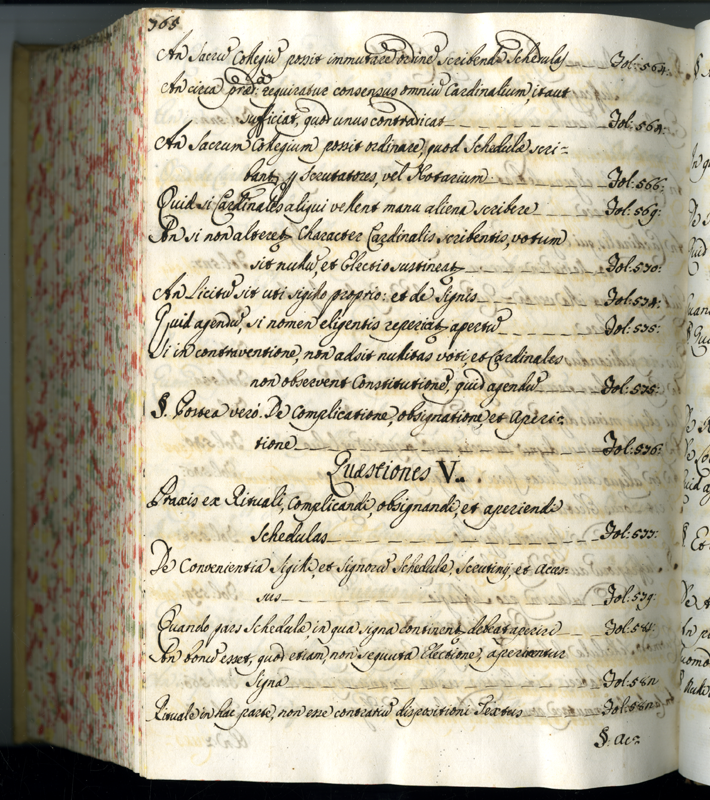 368
An Sacrũ Collegiũ possit immutare ordinẽ scribendi Schedulas Fol: 564:
An circa præd:ᵃ requiratur consensus omniũ Cardinalium, itaut
sufficiat, quod unus contradicat Fol: 564:
An Sacrum Collegium possit ordinare, quod Schedulæ scri-
bant, ꝑ Scrutatores, vel Notarium Fol: 566:
Quid si Cardinales aliqui vellent manu aliena scribere Fol: 569:
An si non alteret Character Cardinalis scribentis, votum
sit nullũ, et Electio sustineat Fol: 570:
An Licitũ sit uti sigillo proprio: et de Signis Fol: 574:
Quid agendũ, si nomen eligentis reperiat apertũ Fol: 575:
Si in contraventione, non adsit nullitas voti, et Cardinales
non observent Constitutionẽ, quid agendũ Fol: 575:
§. Postea vero. De Complicatione, obsignatione, et Aperi-
tione Fol: 576:
Quæstiones V.
Praxis ex Rituali, Complicandi, obsignandi, et aperiendi
Schedulas Fol: 577:
De Convenientia Sigilli, et Signorũ Schedulæ, Scrutinij, et Acces-
sus Fol: 579:
Quando pars Schedulæ in qua signa continent, debeat aperiri Fol: 581:
An bonũ esset, quod etiam, non sequuta Electione, aperirentur
Signa Fol: 58
Rituale in hac parte, non esse contrariũ dispositioni Textus Fol: 58
§. Ac-